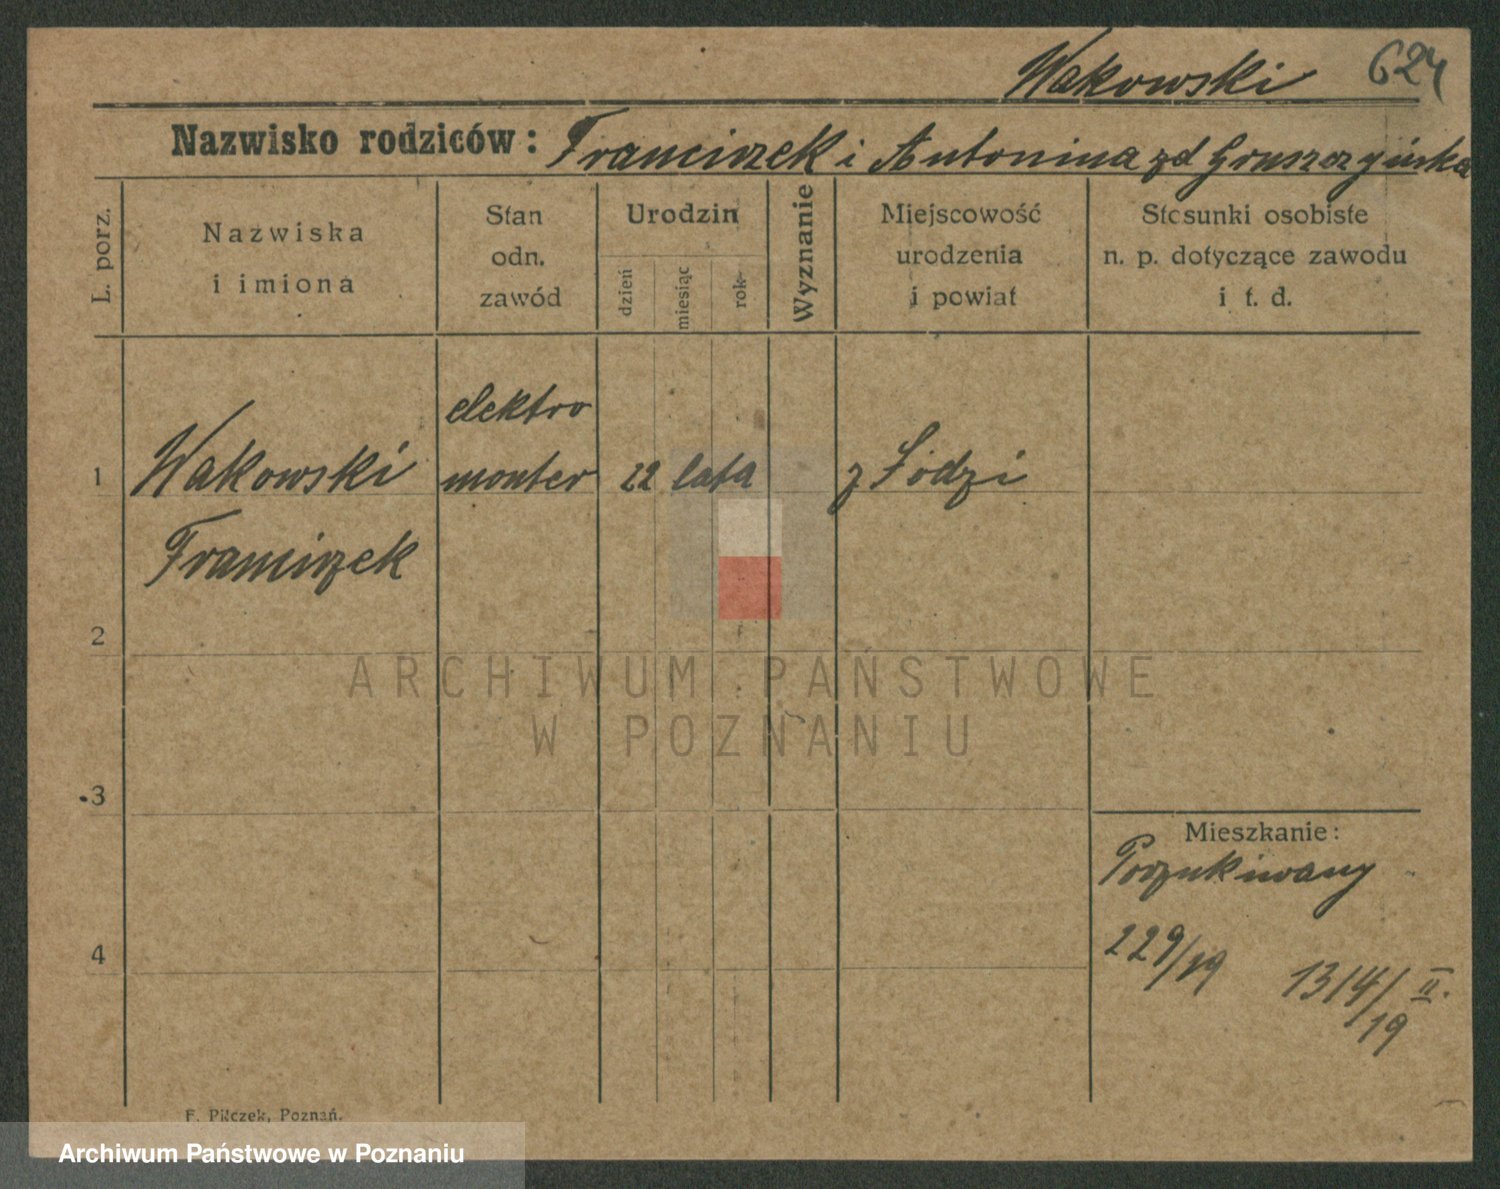 Wakowski 624
Nazwisko rodziców: Franciszek i Antonina zd Gruszczyńska
L. porz.
Nazwiska
i imiona
Stan
odn.
zawód
Urodzin
dzień
miesiąc
rok
Wyznanie
Miejscowość
urodzenia
i powiat
Stosunki osobiste
n. p. dotyczące zawodu
i t. d.
elektro
1 Wakowski monter 22 lata z Łodzi
Franciszek
2
ARCHIWUM PAŃSTWOWE
W POZNANIU
3
Mieszkanie:
Poszukiwany
4
229/19 1314/19 II.
F. Pilczek, Poznań.
Archiwum Państwowe w Poznaniu